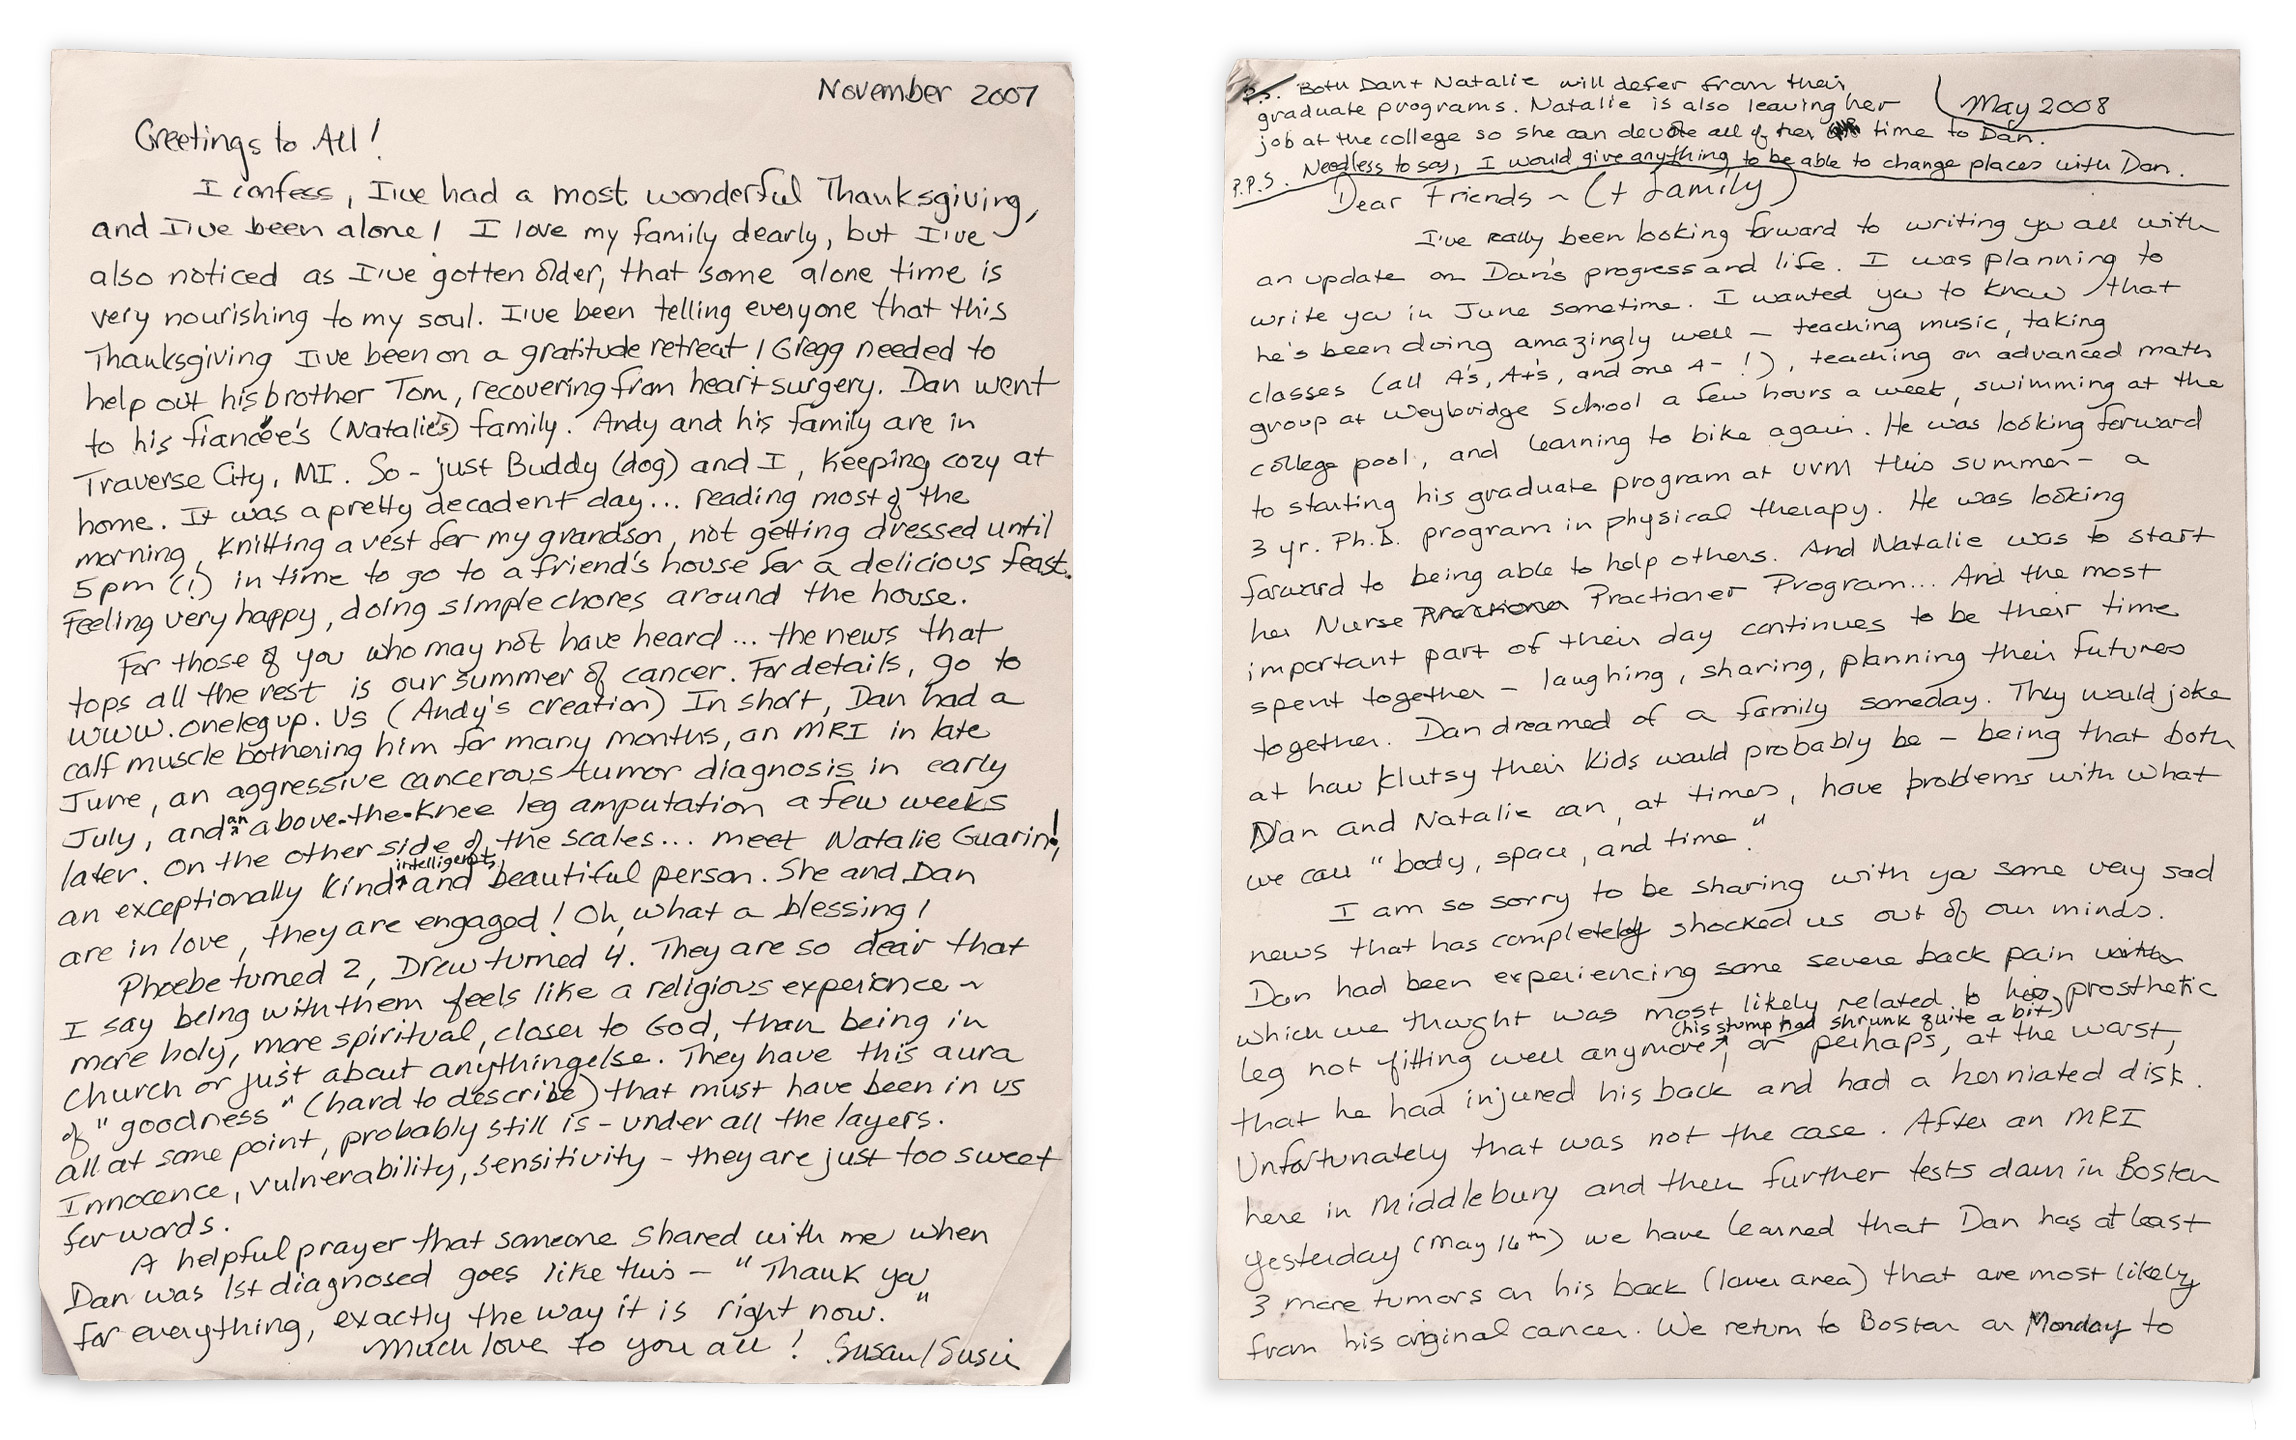 November 2007
Greetings to All!
I confess, I've had a most wonderful Thanksgiving,
and I've been alone! I love my family dearly, but I've
also noticed as I've gotten older, that some alone time is
very nourishing to my soul. I've been telling everyone that this
Thanksgiving I've been on a gratitude retreat! Gregg needed to
help out his brother Tom, recovering from heart surgery. Dan went
to his fiancée's (Natalie's) family. Andy and his family are in
Traverse City, MI. So - just Buddy (dog) and I, keeping cozy at
home. It was a pretty decadent day... reading most of the
morning, knitting a vest for my grandson, not getting dressed until
5pm (!) in time to go to a friend's house for a delicious feast.
Feeling very happy, doing simple chores around the house.
For those of you who may not have heard... the news that
tops all the rest is our summer of cancer. For details, go to
www.onelegup.us (Andy's creation) In short, Dan had a
calf muscle bothering him for many months, an MRI in late
June, an aggressive cancerous tumor diagnosis in early
July, and an above-the-knee leg amputation a few weeks
later. On the other side of the scales... meet Natalie Guarin!,
an exceptionally kind intelligent and beautiful person. She and Dan
are in love, they are engaged! Oh, what a blessing!
Phoebe turned 2, Drew turned 4. They are so dear that
I say being with them feels like a religious experience ~
more holy, more spiritual, closer to God, than being in
church or just about anything else. They have this aura
of "goodness" (hard to describe) that must have been in us
all at some point, probably still is - under all the layers.
Innocence, vulnerability, sensitivity - they are just too sweet
for words.
A helpful prayer that someone shared with me when
Dan was 1st diagnosed goes like this - "Thank you
for everything, exactly the way it is right now."
Much love to you all! Susan/Susie
P.S. Both Dan + Natalie will defer from their
graduate programs. Natalie is also leaving her
May 2008
job at the college so she can devote all of her time to Dan.
P.P.S. Needless to say, I would give anything to be able to change places with Dan.
Dear Friends ~ (+ family)
I've really been looking forward to writing you all with
an update on Dan's progress and life. I was planning to
write you in June sometime. I wanted you to know that
he's been doing amazingly well - teaching music, taking
classes (all A's, A+'s, and one A- !), teaching an advanced math
group at Weybridge School a few hours a week, swimming at the
college pool, and learning to bike again. He was looking forward
to starting his graduate program at UVM this summer - a
3 yr. Ph.D. program in physical therapy. He was looking
forward to being able to help others. And Natalie was to start
her Nurse Practioner Program... And the most
important part of their day continues to be their time
spent together - laughing, sharing, planning their futures
together. Dan dreamed of a family someday. They would joke
at how klutsy their kids would probably be - being that both
Dan and Natalie can, at times, have problems with what
we call "body, space, and time."
I am so sorry to be sharing with you some very sad
news that has completely shocked us out of our minds.
Dan had been experiencing some severe back pain
which we thought was most likely related to his prosthetic
leg not fitting well anymore (his stump had shrunk quite a bit), or perhaps, at the worst,
that he had injured his back and had a herniated disk.
Unfortunately that was not the case. After an MRI
here in Middlebury and then further tests down in Boston
yesterday (May 16th) we have learned that Dan has at least
3 more tumors on his back (lower area) that are most likely
from his original cancer. We return to Boston on Monday to